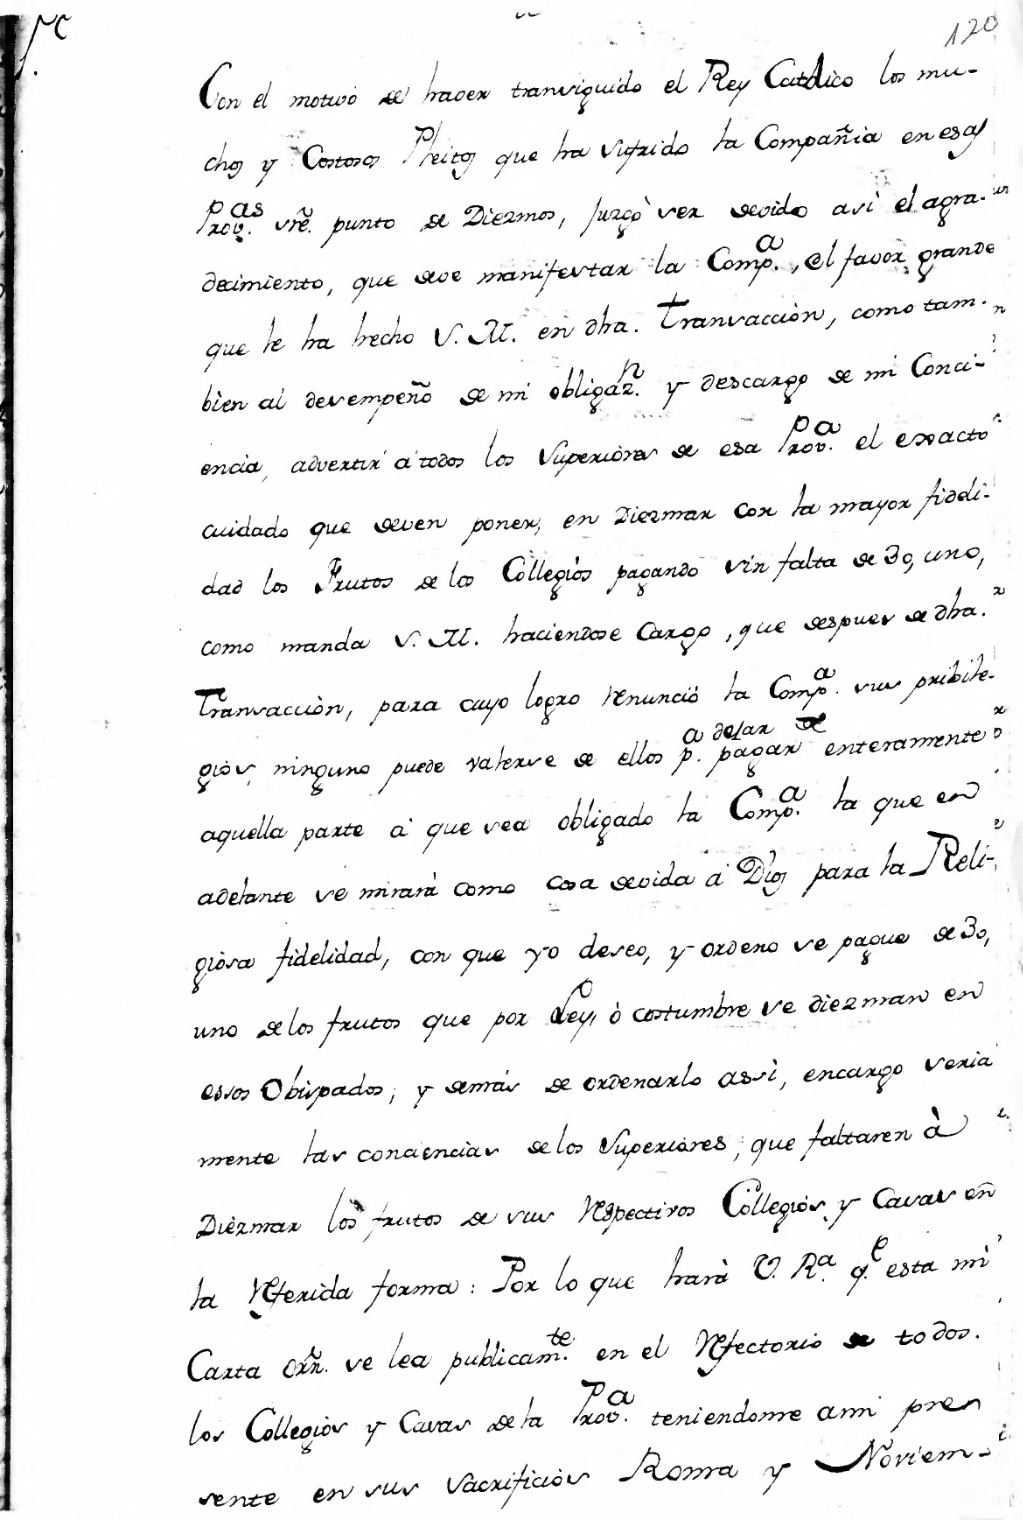 120
Con el motivo de haver transiguido el Rey Catolico los mu-
chos y Costosos Pleitos que ha sufrido la Compañia en esas
Prov.as sre. punto de Diezmos, juzgò ser devido asi el agra-
decimiento, que deve manifestar la Comp.a, el favor grande
que le ha hecho S. M. en dha. Transacciòn, como tam-
bien al desempeño de mi obligaz.n y descargo de mi Conci-
encia, advertir a todos los Superiores de esa Prov.a el exacto
cuidado que deven poner, en Diezmar con la mayor fideli-
dad los Frutos de los Collegios pagando sin falta de 30, uno,
como manda S. M. haciendose Cargo, que despues de dha.
Transacciòn, para cuyo logro renunciò la Comp.a sus pribile-
gios, ninguno puede valerse de ellos p.a dejar de pagar enteramente
aquella parte a que sea obligado la Comp.a la que en
adelante se mirarà como cosa devida a Dios para la Reli-
giosa fidelidad, con que yo deseo, y ordeno se pague de 30,
uno de los frutos que por Ley, ò costumbre se diezman en
essos Obispados; y demàs de ordenarlo assi, encargo seria
mente las conciencias de los Superiores, que faltaren à
Diezmar los frutos de sus respectivos Collegios y Casas en
la referida forma: Por lo que harà V. R.a q.e esta mi
Carta orñ. se lea publicam.te en el refectorio de todos.
los Collegios y Casas de la Prov.a teniendome ami pre
sente en sus sacrificios Roma y Noviem-